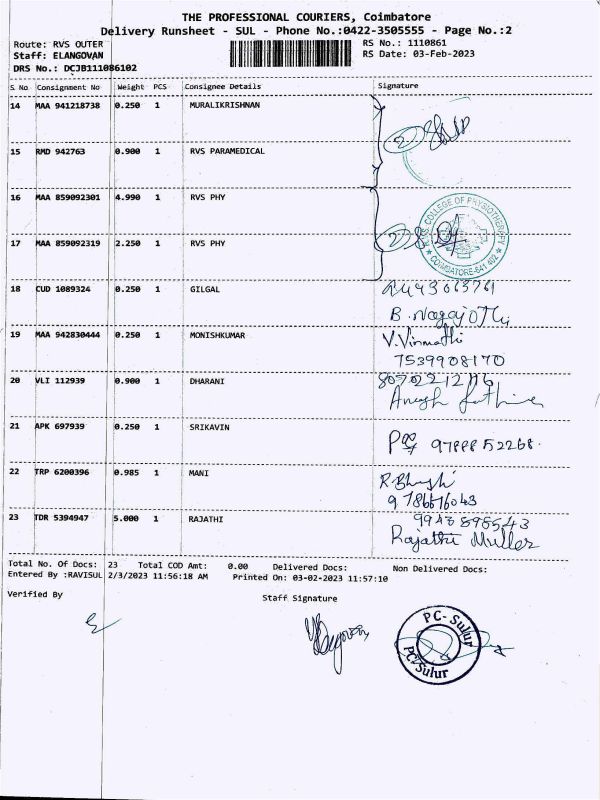 THE PROFESSIONAL COURIERS, Coimbatore
Delivery Runsheet - SUL - Phone No.:0422-3505555 - Page No.:2
Route: RVS OUTER RS No.: 1110861
Staff: ELANGOVAN RS Date: 03-Feb-2023
DRS No.: DCJB111086102
S No Consignment No Weight PCS Consignee Details Signature
14 MAA 941218738 0.250 1 MURALIKRISHNAN
2
15 RMD 942763 0.900 1 RVS PARAMEDICAL
16 MAA 859092301 4.990 1 RVS PHY
R.V.S. COLLEGE OF PHYSIOTHERAPY
COIMBATORE-641 402
2
17 MAA 859092319 2.250 1 RVS PHY
18 CUD 1089324 0.250 1 GILGAL
B. Nagajothi
19 MAA 942830444 0.250 1 MONISHKUMAR V.Vinmathi
7539908170
20 VLI 112939 0.900 1 DHARANI
21 APK 697939 0.250 1 SRIKAVIN
22 TRP 6200396 0.985 1 MANI
9786676043
23 TDR 5394947 5.000 1 RAJATHI 9948898543
Rajathi Muller
Total No. Of Docs: 23 Total COD Amt: 0.00 Delivered Docs: Non Delivered Docs:
Entered By :RAVISUL 2/3/2023 11:56:18 AM Printed On: 03-02-2023 11:57:10
Verified By Staff Signature
PC-Sulur
PC-Sulur